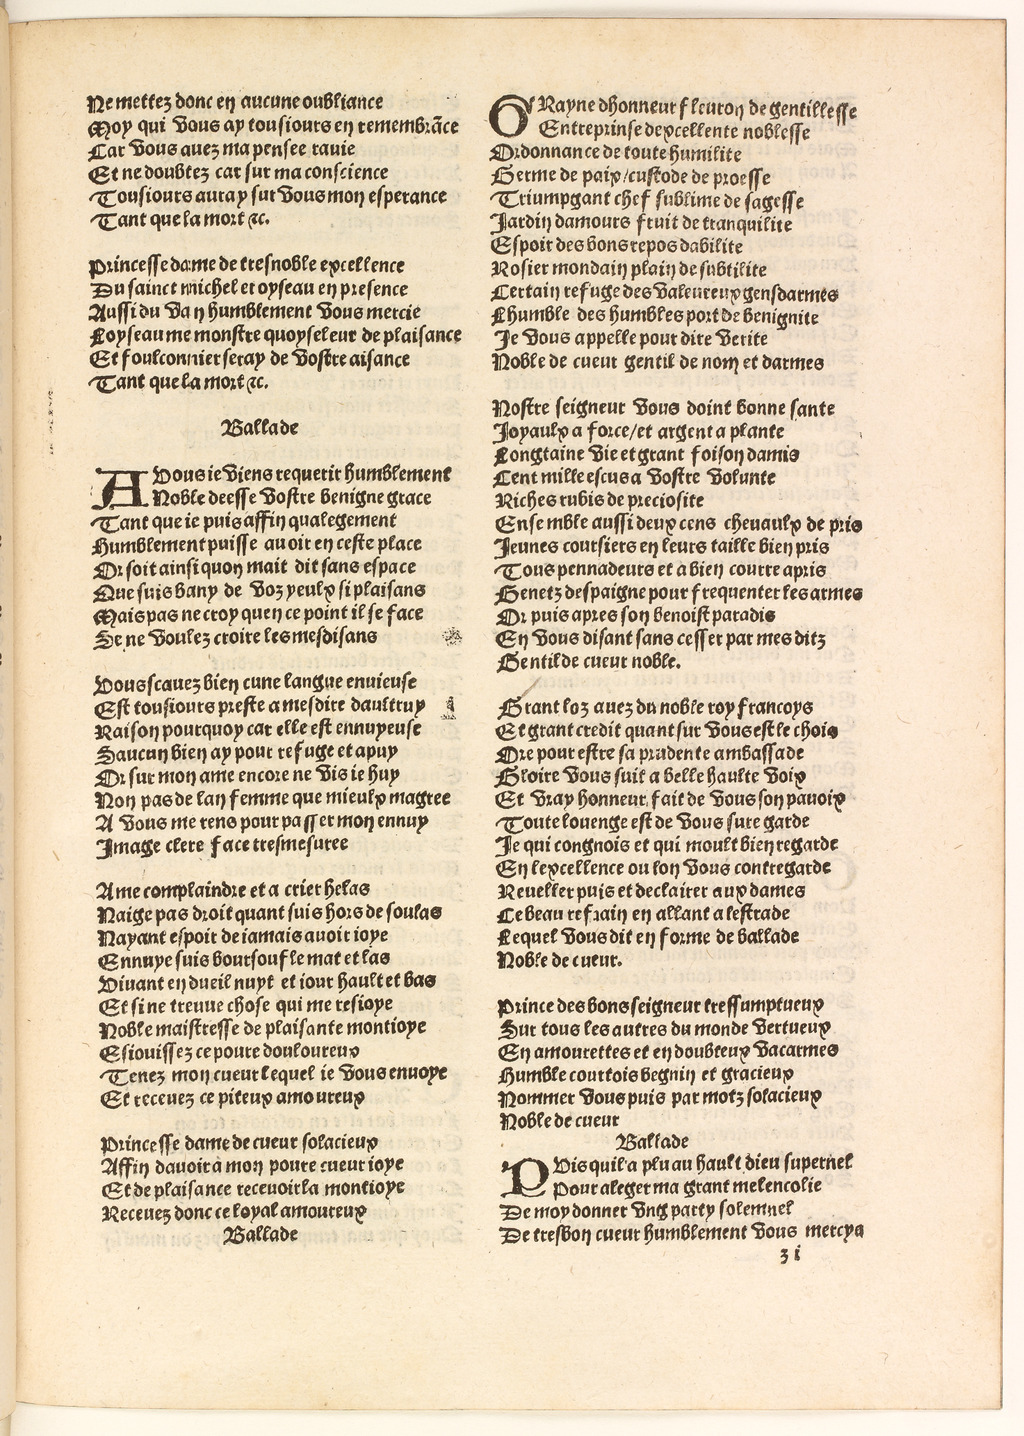 Ne mettez donc en aucune oubliance
Moy qui vous ay tousiours en remembrāce
Car vous auez ma pensee rauie
Et ne doubtez car sur ma conscience
Tousiours auray sur vous mon esperance
Tant que la mort ⁊c.
Princesse dame de tresnoble excellence
Du sainct michel et oyseau en presence
Aussi du van humblement vous mercie
Loyseau me monstre quoyseleur de plaisance
Et foulconnier seray de vostre aisance
Tant que la mort ⁊c.
Ballade
A Vous ie viens requerir humblement
Noble deesse vostre benigne grace
Tant que ie puis affin qualegement
Humblement puisse auoir en ceste place
Or soit ainsi quon mait dit sans espace
Que suis bany de voz yeulx si plaisans
Mais pas ne croy quen ce point il se face
Se ne voulez croire les mesdisans
Vous scauez bien cune langue enuieuse
Est tousiours preste a mesdire daultruy
Raison pourquoy car elle est ennuyeuse
Saucun bien ay pour refuge et apuy
Or sur mon ame encore ne vis ie huy
Non pas de lan femme que mieulx magree
A vous me rens pour passer mon ennuy
Image clere face tresmesuree
Ame complaindre et a crier helas
Naige pas droit quant suis hors de soulas
Nayant espoir de iamais auoir ioye
Ennuye suis boursoufle mat et las
Viuant en dueil nuyt et iour hault et bas
Et si ne treuue chose qui me resioye
Noble maistresse de plaisante montioye
Esiouissez ce poure douloureux
Tenez mon cueur lequel ie vous enuoye
Et receuez ce piteux amoureux
Princesse dame de cueur solacieux
Affin dauoir a mon poure cueur ioye
Et de plaisance receuoir la montioye
Receuez donc ce loyal amoureux
Ballade
O Rayne dhonneur fleuron de gentillesse
Entreprinse dexcellente noblesse
Ordonnance de toute humilite
Germe de paix/custode de proesse
Triumpgant chef sublime de sagesse
Jardin damours fruit de tranquilite
Espoir des bons repos dabilite
Rosier mondain plain de subtilite
Certain refuge des valeureux gensdarmes
Lhumble des humbles port de benignite
Je vous appelle pour dire verite
Noble de cueur gentil de nom et darmes
Nostre seigneur vous doint bonne sante
Joyaulx a force/et argent a plante
Longtaine vie et grant foison damis
Cent mille escus a vostre volunte
Riches rubis de preciosite
Ense mble aussi deux cens cheuaulx de pris
Jeunes coursiers en leurs taille bien pris
Tous pennadeurs et a bien courre apris
Genetz despaigne pour frequenter les armes
Or puis apres son benoist paradis
En vous disant sans cesser par mes ditz
Gentil de cueur noble.
Grant loz auez du noble roy francoys
Et grant credit quant sur vous est le chois
Ore pour estre sa prudente ambassade
Gloire vous suit a belle haulte voix
Et vray honneur fait de vous son pauoix
Toute louenge est de vous sure garde
Je qui congnois et qui moult bien regarde
En lexcellence ou lon vous contregarde
Reueller puis et declairer aux dames
Ce beau refrain en allant a lestrade
Lequel vous dit en forme de ballade
Noble de cueur.
Prince des bons seigneur tressumptueux
Sur tous les autres du monde vertueux
En amourettes et en doubteux vacarmes
Humble courtois begnin et gracieux
Nommer vous puis par motz solacieux
Noble de cueur
Ballade
P Vis quil a plu au hault dieu supernel
Pour aleger ma grant melencolie
De moy donner vng party solemnel
De tresbon cueur humblement vous mercya
3 i